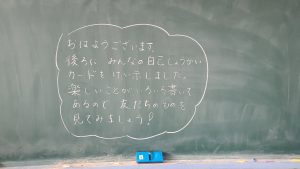 おはようございます。
後ろに みんなの自己しょうかい
カードをけい示しました。
楽しいことがいろいろ書いて
あるので 友だちのものを
見てみましょう!